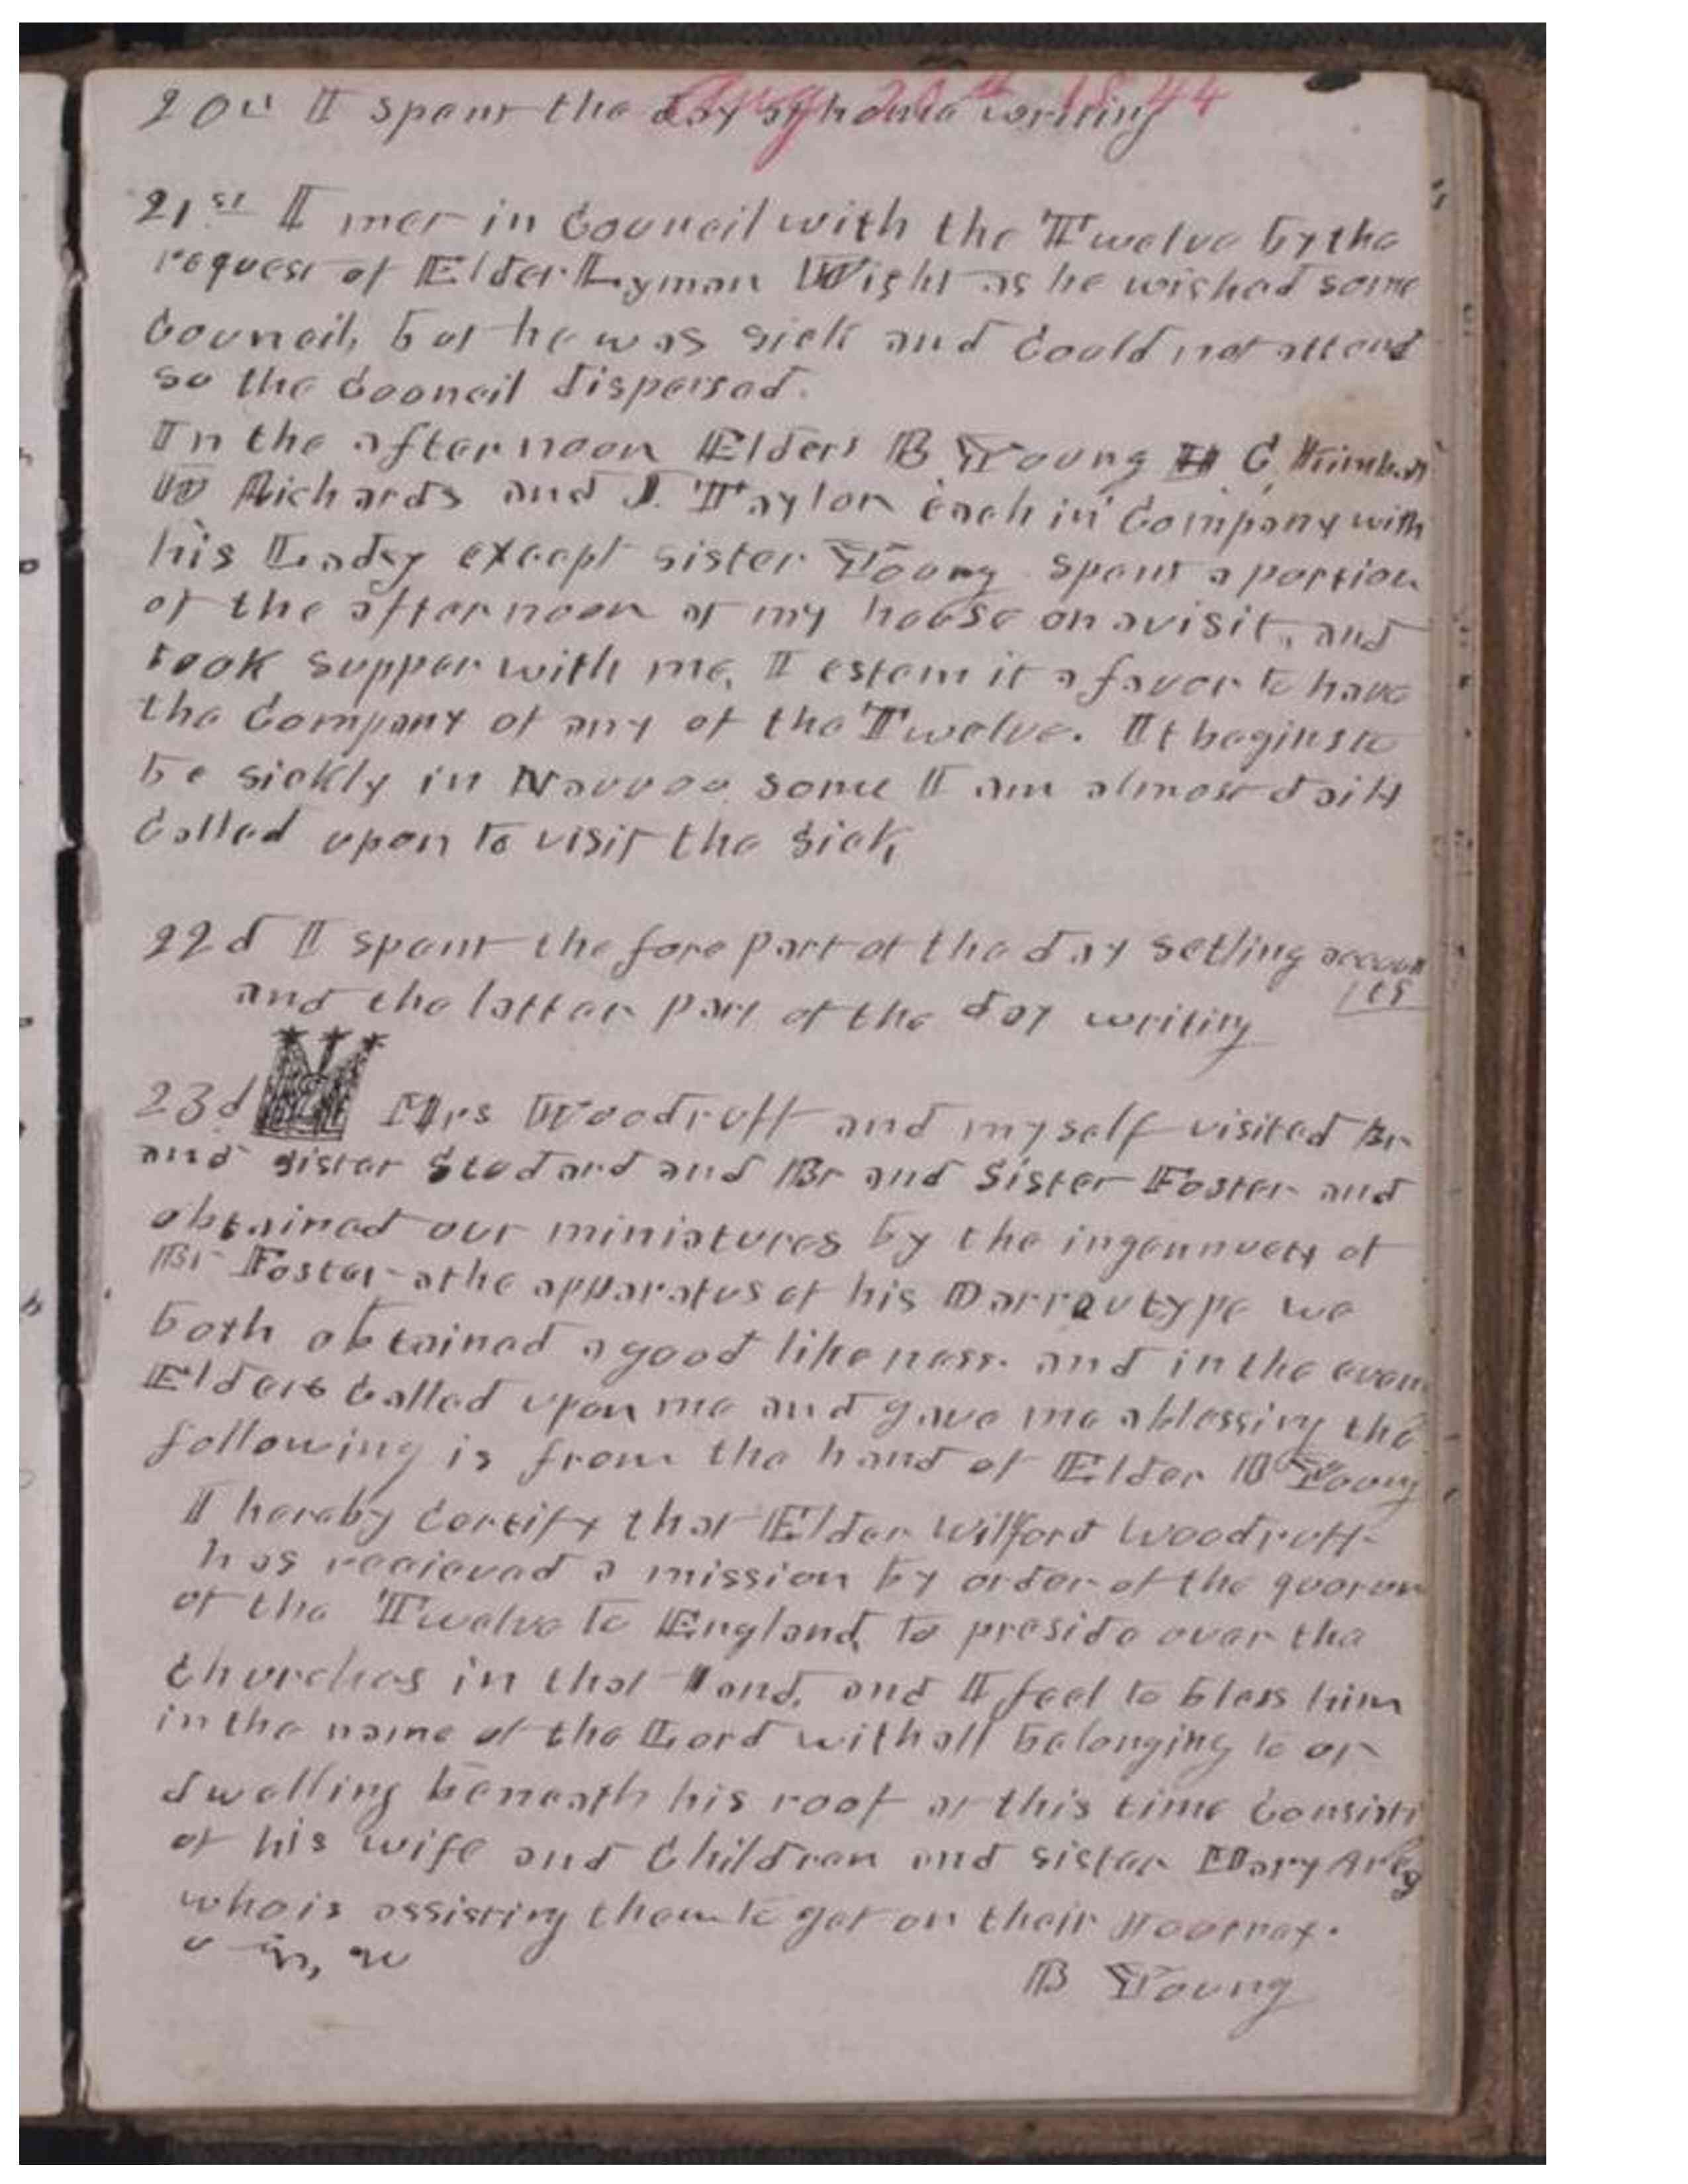 Aug 20th 1844
20th I spent the day at home writing
21st I met in Council with the Twelve by the
request of Elder Lyman Wight as he wished some
Council, but he was sick and Could not attend
so the Council dispersed.
In the afternoon Elders B Young H C Kimball
W Richards and J. Taylor each in Company with
his Lady except sister Young spent a portion
of the afternoon at my house on a visit, and
took supper with me, I estem it a favor to have
the Company of any of the Twelve. It begins to
be sickly in Nauvoo some I am almost daily
Called upon to visit the sick,
22d I spent the fore part of the day setling accoun
ts
and the latter part of the day writing
23d Mrs Woodruff and myself visited Br
and sister Stodard and Br and Sister Foster and
obtained our miniatures by the ingennuety of
Br Foster athe apparatus of his Darrautype we
both obtained a good likeness. and in the even
Elders Called upon me and gave me a blessing the
following is from the hand of Elder B Young
I hereby Certify that Elder Wilford Woodruff
has recieved a mission by order of the quorum
of the Twelve to England, to preside over the
Churches in that land, and I feel to bless him
in the name of the Lord with all belonging to or
dwelling beneath his roof at this time Consisti
of his wife and Children and sister Mary
who is assisting them to get on their
B Young